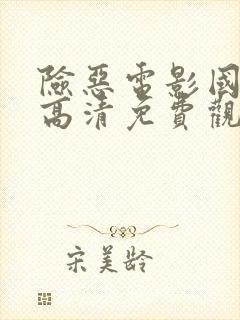 險惡電影國
高清免費觀
宋美齡